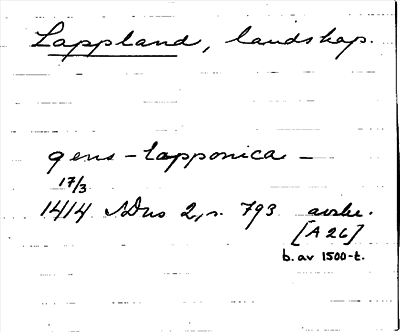 Lappland, landskap.
gens - lapponica -
17/3
1414 SDns 2, s. 793 avskr.
[A 26]
b. av 1500-t.